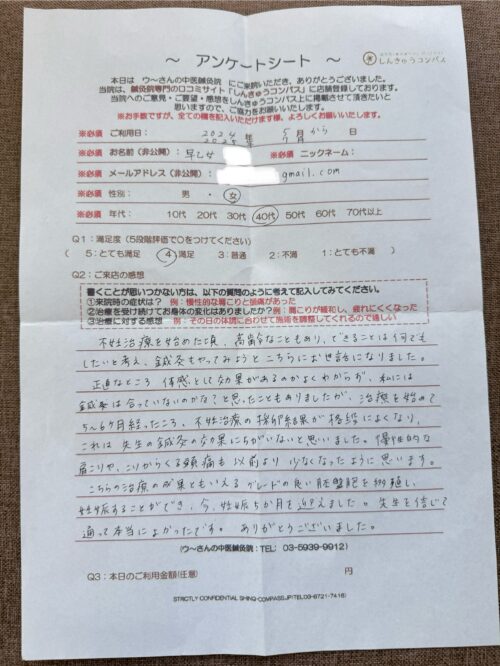 ～ アンケートシート ～
しんきゅうコンパス
本日は ウ～さんの中医鍼灸院 にご来院いただき、ありがとうございました。
当院は、鍼灸院専門の口コミサイト「しんきゅうコンパス」に店舗登録しております。
当院へのご意見・ご要望・感想をしんきゅうコンパス上に掲載させて頂きたいと
思いますので、ご協力をお願いいたします。
※お手数ですが、全ての欄を記入いただけます様、よろしくお願いいたします。
※必須 ご利用日： 2024 年 5 月から 日
2025 7
※必須 お名前（非公開）： 早乙女 ※必須 ニックネーム：
※必須 メールアドレス（非公開）： gmail.com
※必須 性別： 男 ・ 女
※必須 年代： 10代 20代 30代 40代 50代 60代 70代以上
Q1：満足度（5段階評価で〇をつけてください）
（ 5：とても満足 4：満足 3：普通 2：不満 1：とても不満 ）
Q2：ご来店の感想
書くことが思いつかない方は、以下の質問のように考えて記入してみてください。
①来院時の症状は？ 例：慢性的な肩こりと頭痛があった
②治療を受け続けてお身体の変化はありましたか？ 例：肩こりが緩和し、疲れにくくなった
③治療に対する感想 例：その日の体調に合わせて施術を調整してくれるので嬉しい
不妊治療を始めた頃、高齢なこともあり、できることは何でも
したいと考え、鍼灸もやってみようとこちらにお世話になりました。
正直なところ 体感として効果があるのかよくわからず、私には
鍼灸は合っていないのかなと思ったこともありましたが、治療を始めて
5～6ヶ月経ったころ、不妊治療の採卵結果が格段によくなり、
これは先生の鍼灸の効果にちがいないと思いました。慢性的な
肩こりや、こりからくる頭痛も以前より少なくなったように思います。
こちらの治療の成果ともいえるグレードの良い胚盤胞を移植し、
妊娠することができ、今、妊娠5か月を迎えました。先生を信じて
通って本当によかったです。 ありがとうございました。
（ウ～さんの中医鍼灸院：TEL： 03-5939-9912）
Q3：本日のご利用金額（任意） 円
STRICTLY CONFIDENTIAL SHINQ-COMPASS.JP(TEL03-6721-7416)